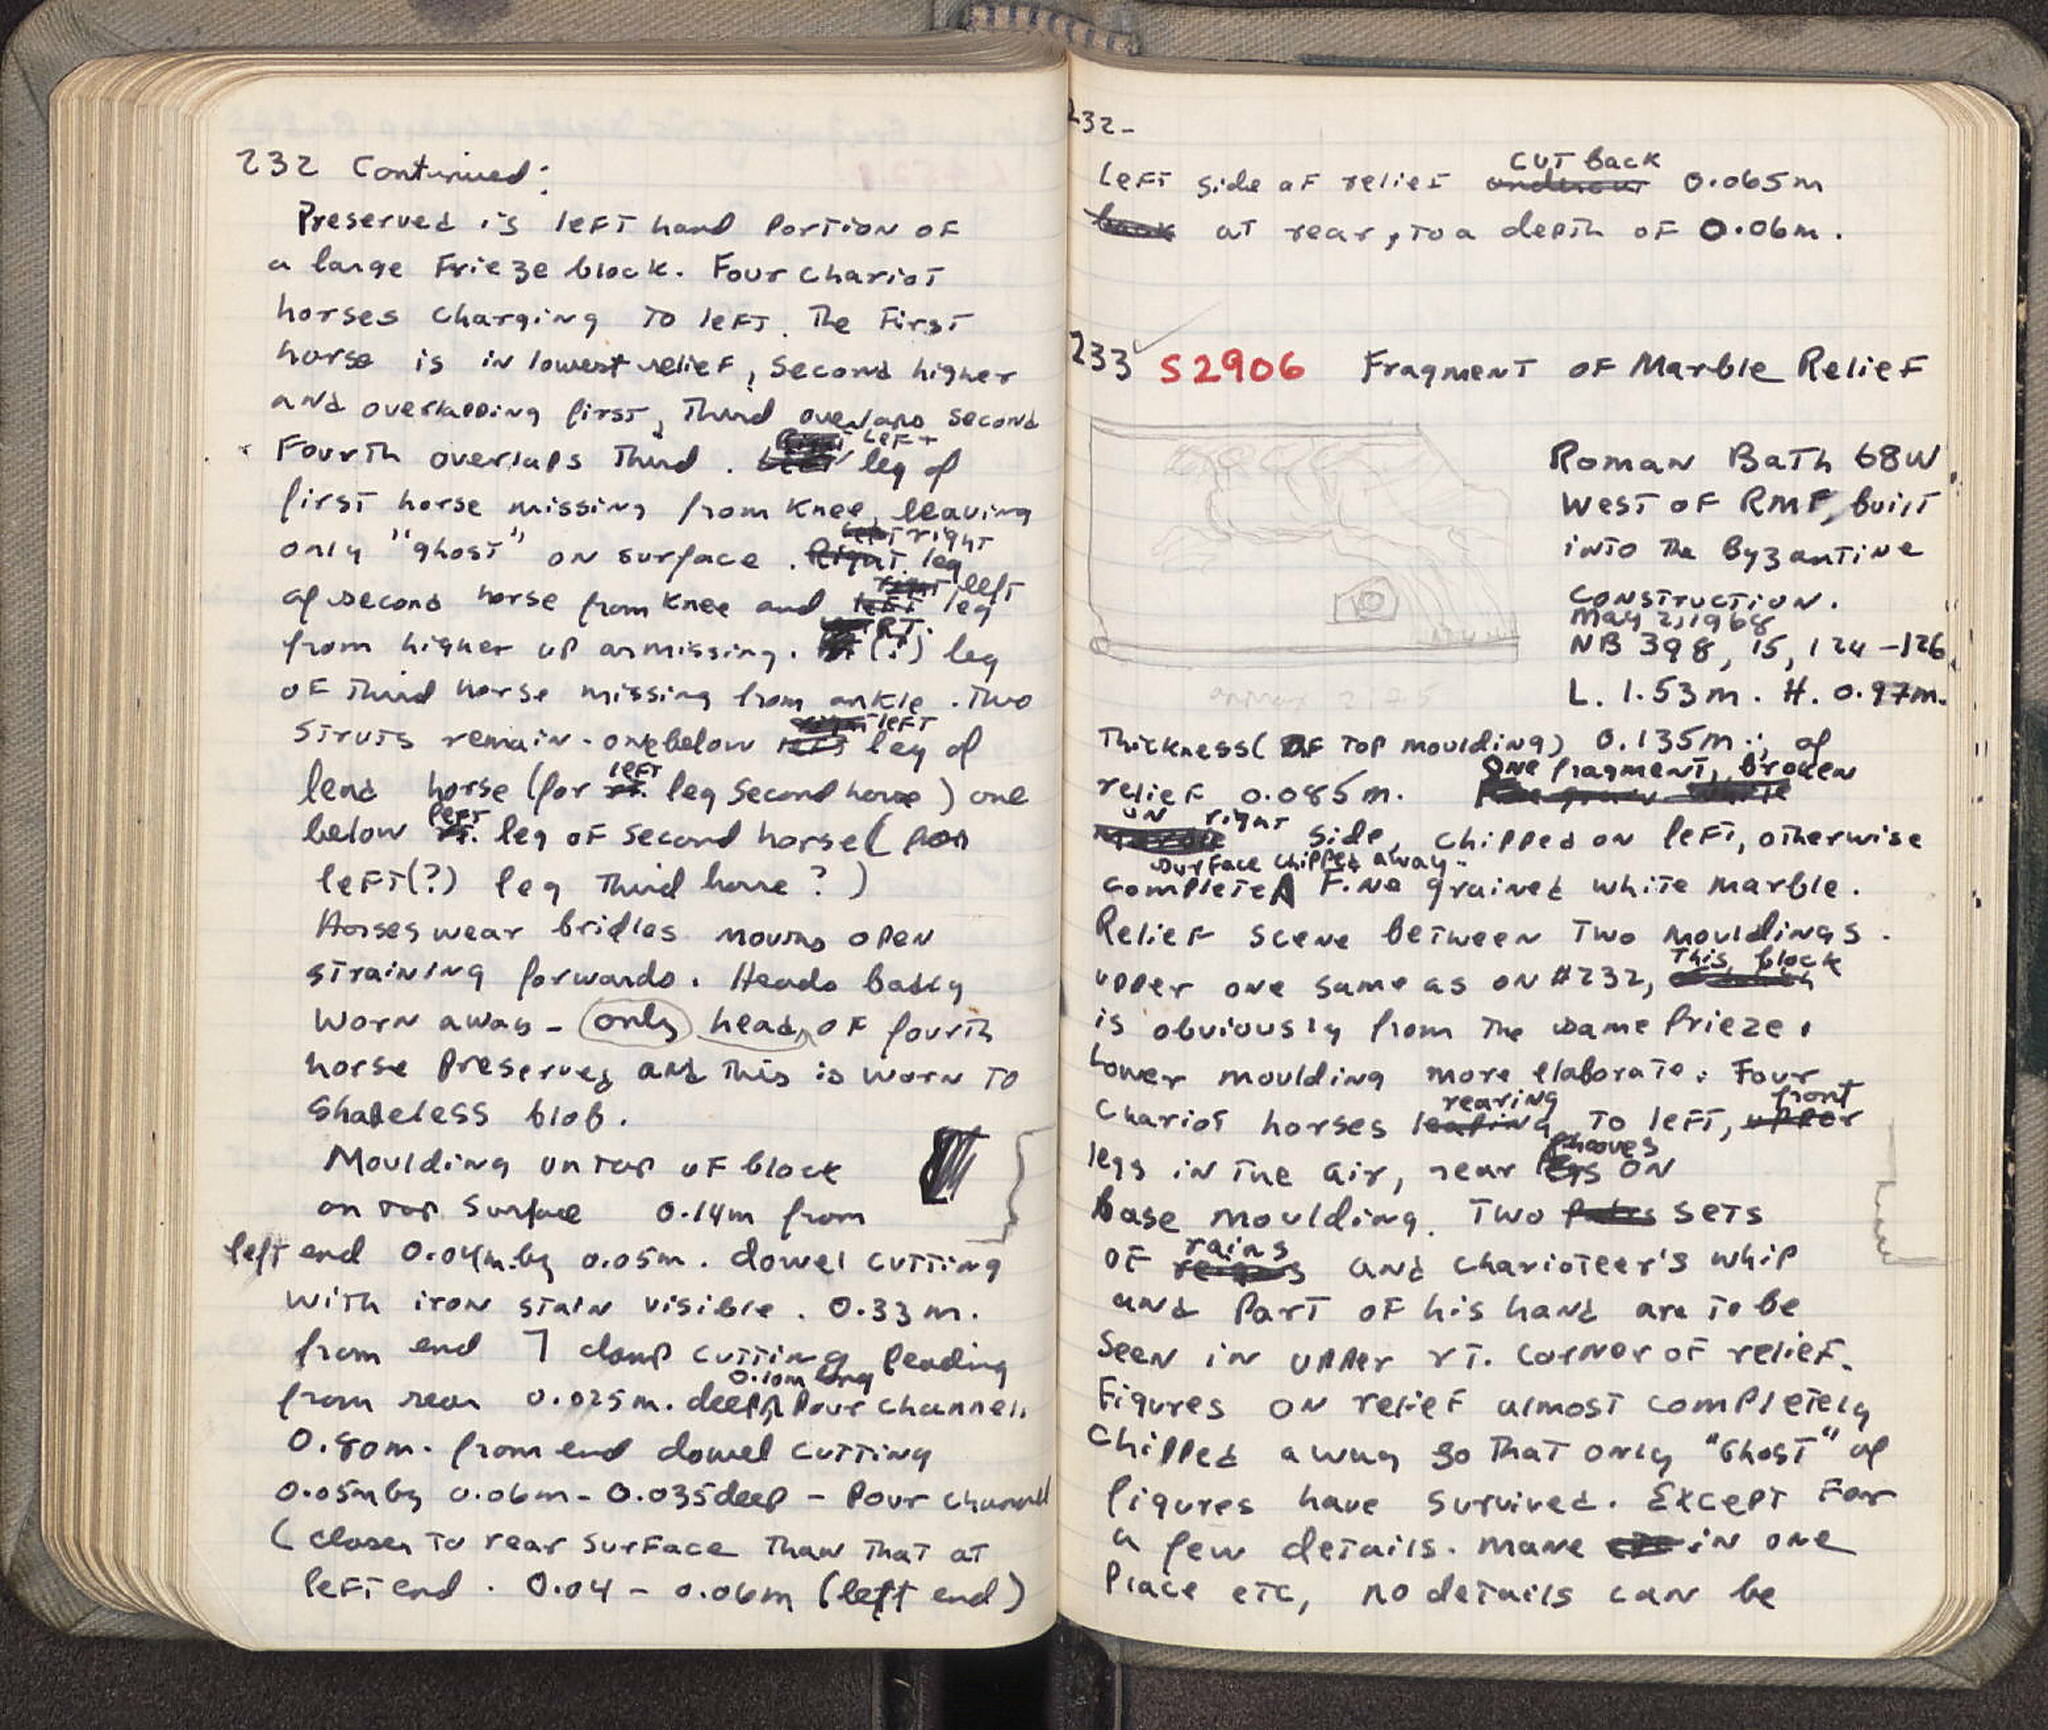 232 Continued:
Preserved is left hand portion of
a large Frieze block. Four chariot
horses charging to left. The First
horse is in lowest relief, second higher
and overlapping first, third overlaps second
Fourth overlaps third. Left leg of
first horse missing from knee, leaving
only "ghost" on surface. right leg
of second horse from knee and left leg
from higher up are missing. RT. (?) leg
of third horse missing from ankle. Two
struts remain - one below left leg of
lead horse (for left leg second horse) one
below left leg of second horse (for
left(?) leg third horse?)
Horses wear bridles mouths open
straining forwards. Heads badly
worn away - only head of fourth
horse preserved and this is worn to
shapeless blob.
Moulding on top of block
on top surface 0.14m from
left end 0.04m.by 0.05m. dowel cutting
with iron stain visible. 0.33m.
from end ⅂ clamp cutting leading
from rear 0.025m. deep, 0.10m long pour channel.
0.80m. from end dowel cutting
0.05m by 0.06m - 0.035 deep - pour channel
(closer to rear surface than that at
left end. 0.04 - 0.06m (left end)
232-
Left side of relief cut back 0.065m
at rear, to a depth of 0.06m.
233 S2906 Fragment of Marble Relief
Roman Bath 68W
West of RMF, built
into the Byzantine
construction.
May 2, 1968
NB 398, 15, 124-126.
L. 1.53m. H. 0.97m.
Thickness (of top moulding) 0.135m.; of
relief 0.085m. One fragment, broken
on right side, chipped on left, otherwise
complete surface chipped away. Fine grained white marble.
Relief scene between two mouldings.
upper one same as on #232, This block
is obviously from the same frieze.
Lower moulding more elaborate. Four
chariot horses rearing to left, front
legs in the air, rear hooves on
base moulding. Two sets
of rains and charioteer's whip
and part of his hand are to be
seen in upper rt. corner of relief.
Figures on relief almost completely
chipped away so that only "Ghost" of
figures have survived. Except for
a few details. mane in one
place etc, no details can be